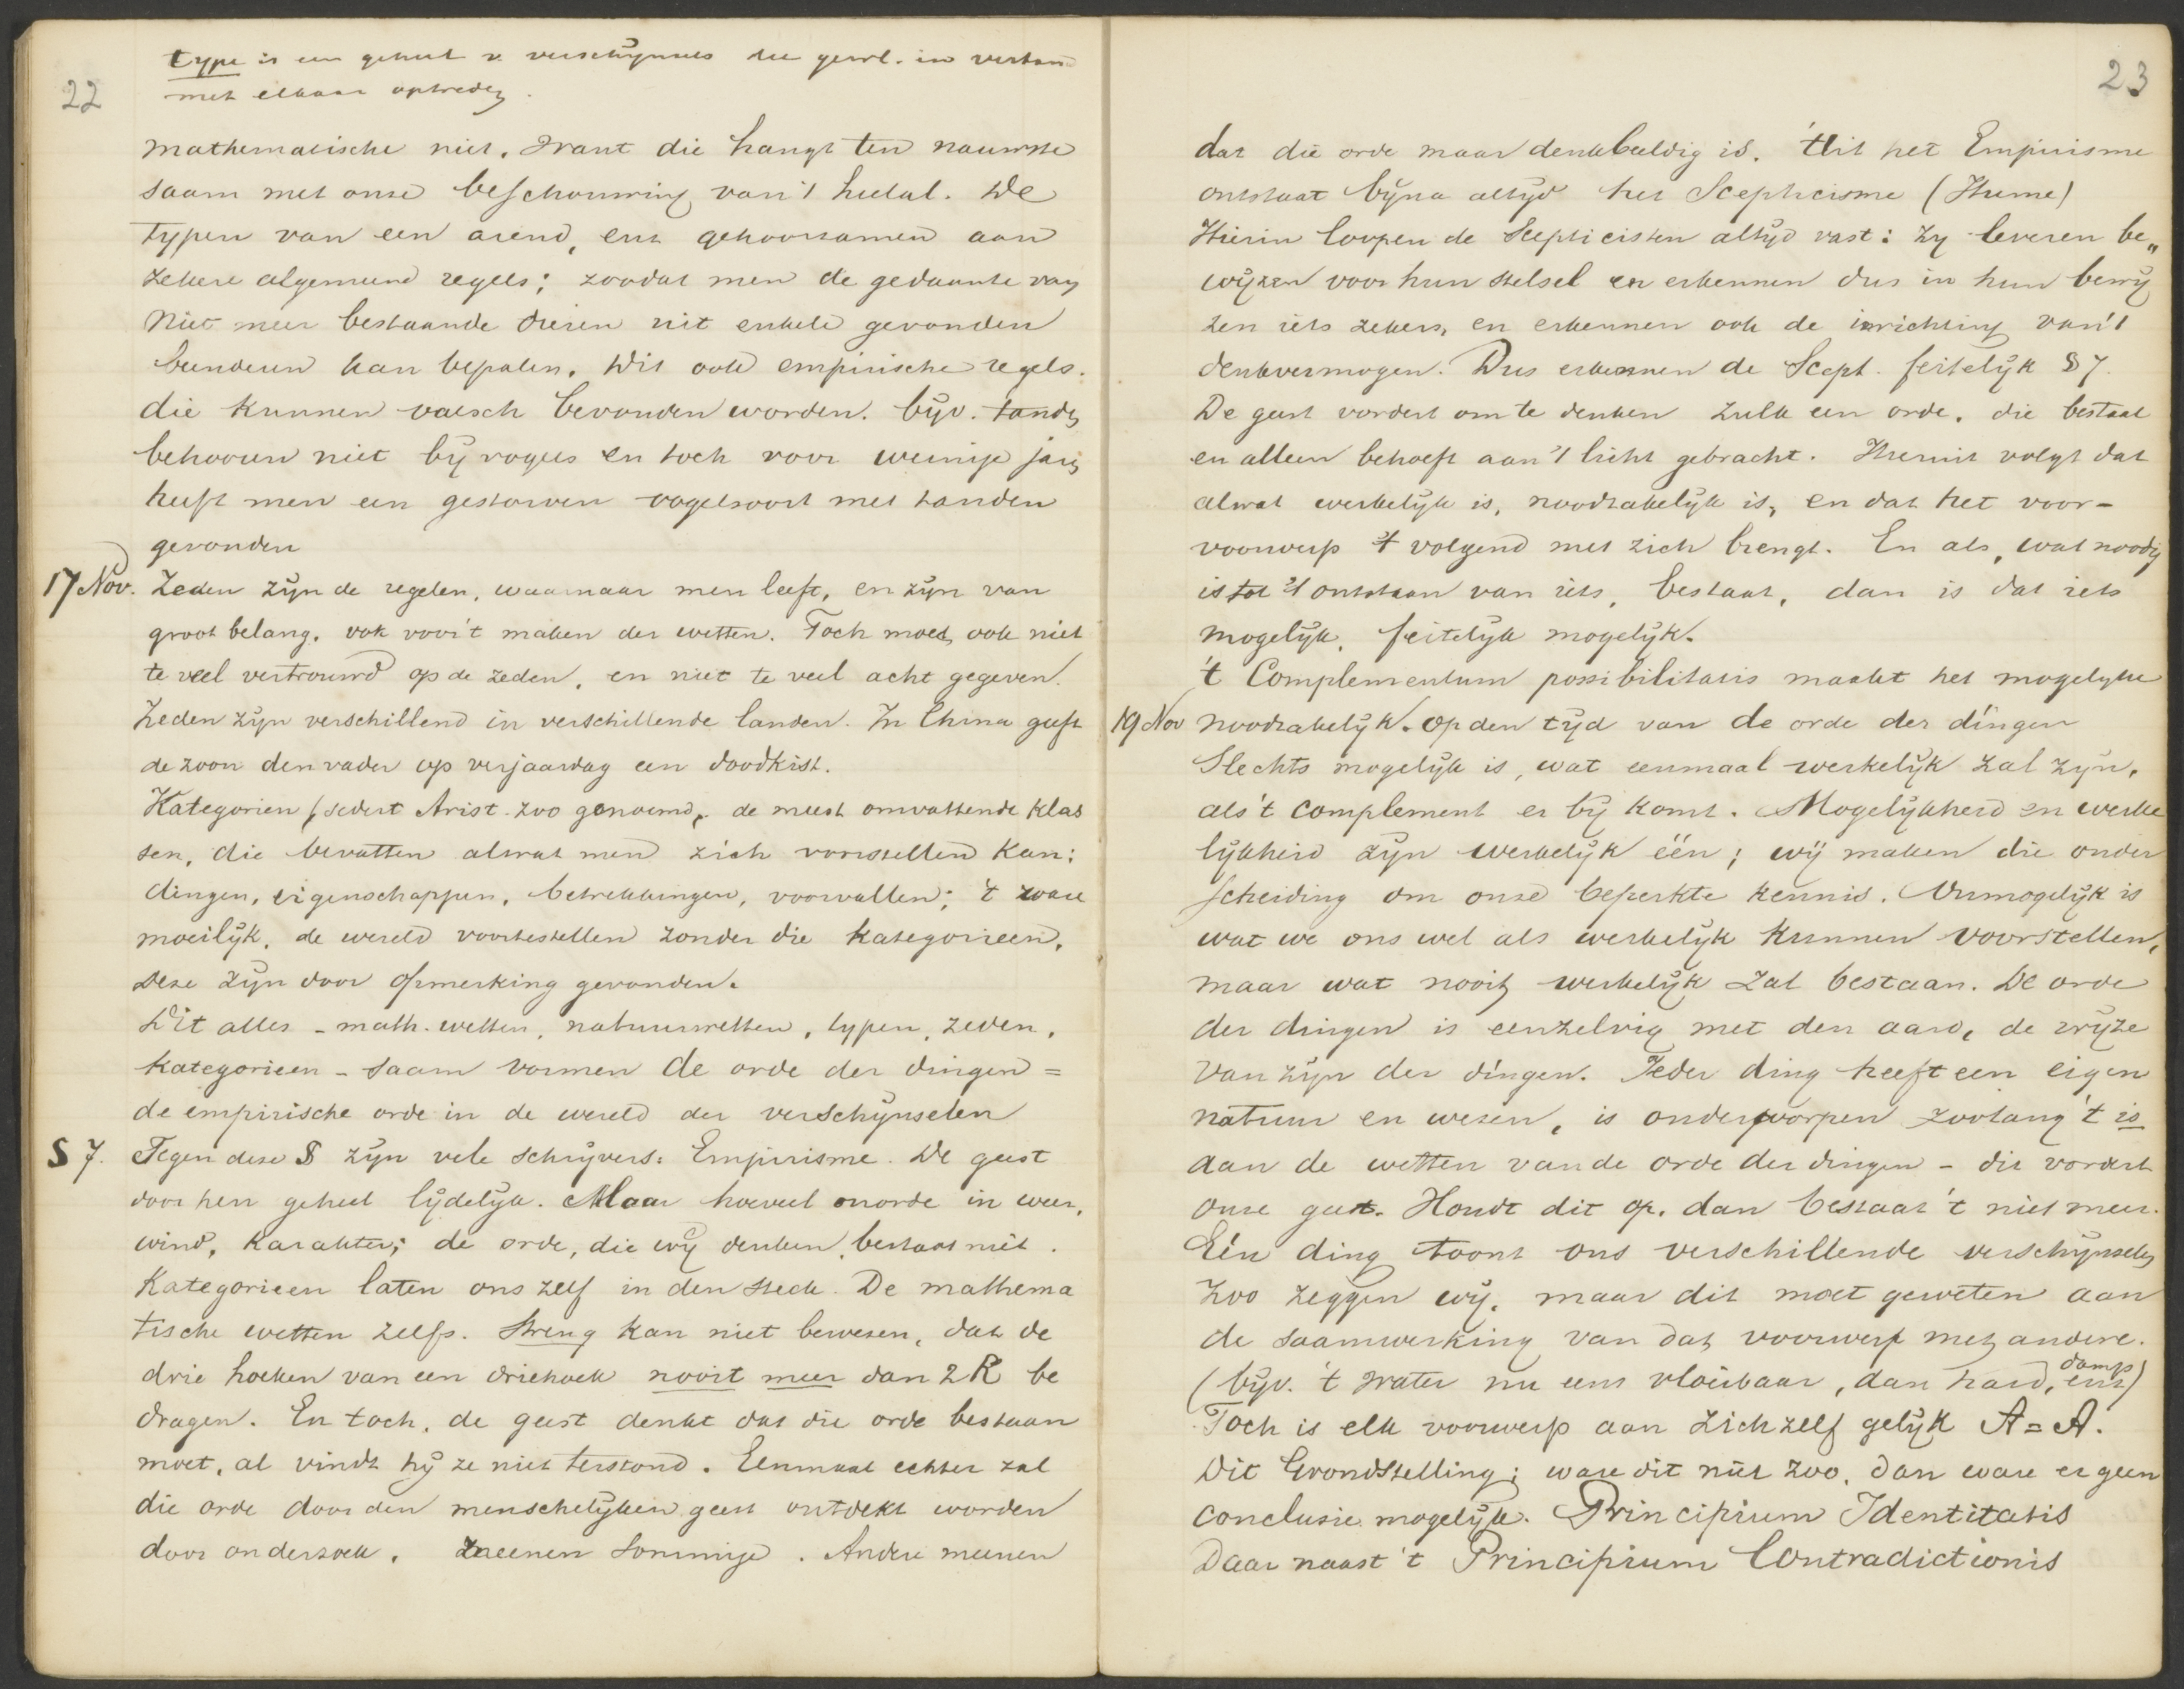 type is een geheel v. verschijnsels die gewl. in verband
22 met elkaar optreden.
mathematische niet, want die hangt ten nauwste
saam met onze beschouwing van 't heelal. De
typen van een arend, enz gehoorzamen aan
zekere algemeene regels; zoodat men de gedaante van
niet meer bestaande dieren uit enkele gevonden
beenderen kan bepalen. Dit ook empirische regels.
die kunnen valsch bevonden worden. bijv. tanden
behooren niet bij vogels en toch voor weinige jaren
heeft men een gestorven vogelsoort met tanden
gevonden
17 Nov. Zeden zijn de regelen, waarnaar men leeft, en zijn van
groot belang, ook voor 't maken der wetten. Toch moet ook niet
te veel vertrouwd op de zeden, en niet te veel acht gegeven.
Zeden zijn verschillend in verschillende landen. In China geeft
de zoon den vader op verjaardag een doodkist.
Kategorien (sedert Arist. zoo genoemd, de meest omvattende klas
sen, die bevatten alwat men zich voorstellen kan:
dingen, eigenschappen, betrekkingen, voorvallen; 't ware
moeilijk, de wereld voortestellen zonder die kategorieen.
Deze zijn door opmerking gevonden.
Dit alles - math. wetten, natuurwetten, typen, zeden,
kategorieen - saam vormen de orde der dingen =
de empirische orde in de wereld der verschijnselen
§ 7. Tegen deze § zijn vele schrijvers: Empirisme. De geest
voor hen geheel lijdelijk. Maar hoeveel onorde in weer,
wind, karakter; de orde, die wij denken, bestaat niet.
Kategorieen laten ons zelf in den steek. De mathema
tische wetten zelfs. Streng kan niet bewezen, dat de
drie hoeken van een driehoek nooit meer dan 2 R be
dragen. En toch, de geest denkt dat die orde bestaan
moet, al vindt hij ze niet terstond. Eenmaal echter zal
die orde door den menschelijken geest ontdekt worden
door onderzoek, meenen sommige. Andere meenen
23
dat die orde maar denkbeeldig is. Uit het Empirisme
ontstaat bijna altijd het Scepticisme (Hume)
Hierin loopen de Scepticisten altijd vast: zij leveren be„
wijzen voor hun stelsel en erkennen dus in hun bewij
zen iets zekers, en erkennen ook de inrichting van 't
denkvermogen. Dus erkennen de Scept. feitelijk § 7.
De geest vordert om te denken zulk een orde, die bestaat
en alleen behoeft aan 't licht gebracht. Hieruit volgt dat
alwat werkelijk is, noodzakelijk is, en dat het voor-
voorwerp 't volgend met zich brengt. En als, wat noodig
is tot 't ontstaan van iets, bestaat, dan is dat iets
mogelijk, feitelijk mogelijk.
't Complementum possibilitatis maakt het mogelyke
19 Nov noodzakelijk. op den tijd van de orde der dingen
Slechts mogelijk is, wat eenmaal werkelijk zal zijn,
als 't complement er bij komt. Mogelijkheid en werke
lijkheid zijn werkelijk één; wij maken die onder
scheiding om onze beperkte kennis. Onmogelijk is
wat we ons wel als werkelijk kunnen voorstellen,
maar wat nooit werkelijk zal bestaan. De orde
der dingen is eenzelvig met den aard, de wijze
van zijn der dingen. Ieder ding heeft een eigen
natuur en wezen, is onderworpen zoolang 't is
aan de wetten van de orde der dingen - dit vordert
onze geest. Houdt dit op, dan bestaat 't niet meer.
Eén ding toont ons verschillende verschijnselen
zoo zeggen wij, maar dit moet geweten aan
de saamwerking van dat voorwerp met andere.
(bijv. 't water nu eens vloeibaar, dan hard, damp enz)
Toch is elk voorwerp aan zichzelf gelijk A = A.
Dit Grondstelling; ware dit niet zoo, dan ware er geen
conclusie mogelijk. Principium Identitatis
Daar naast 't Principium Contradictionis